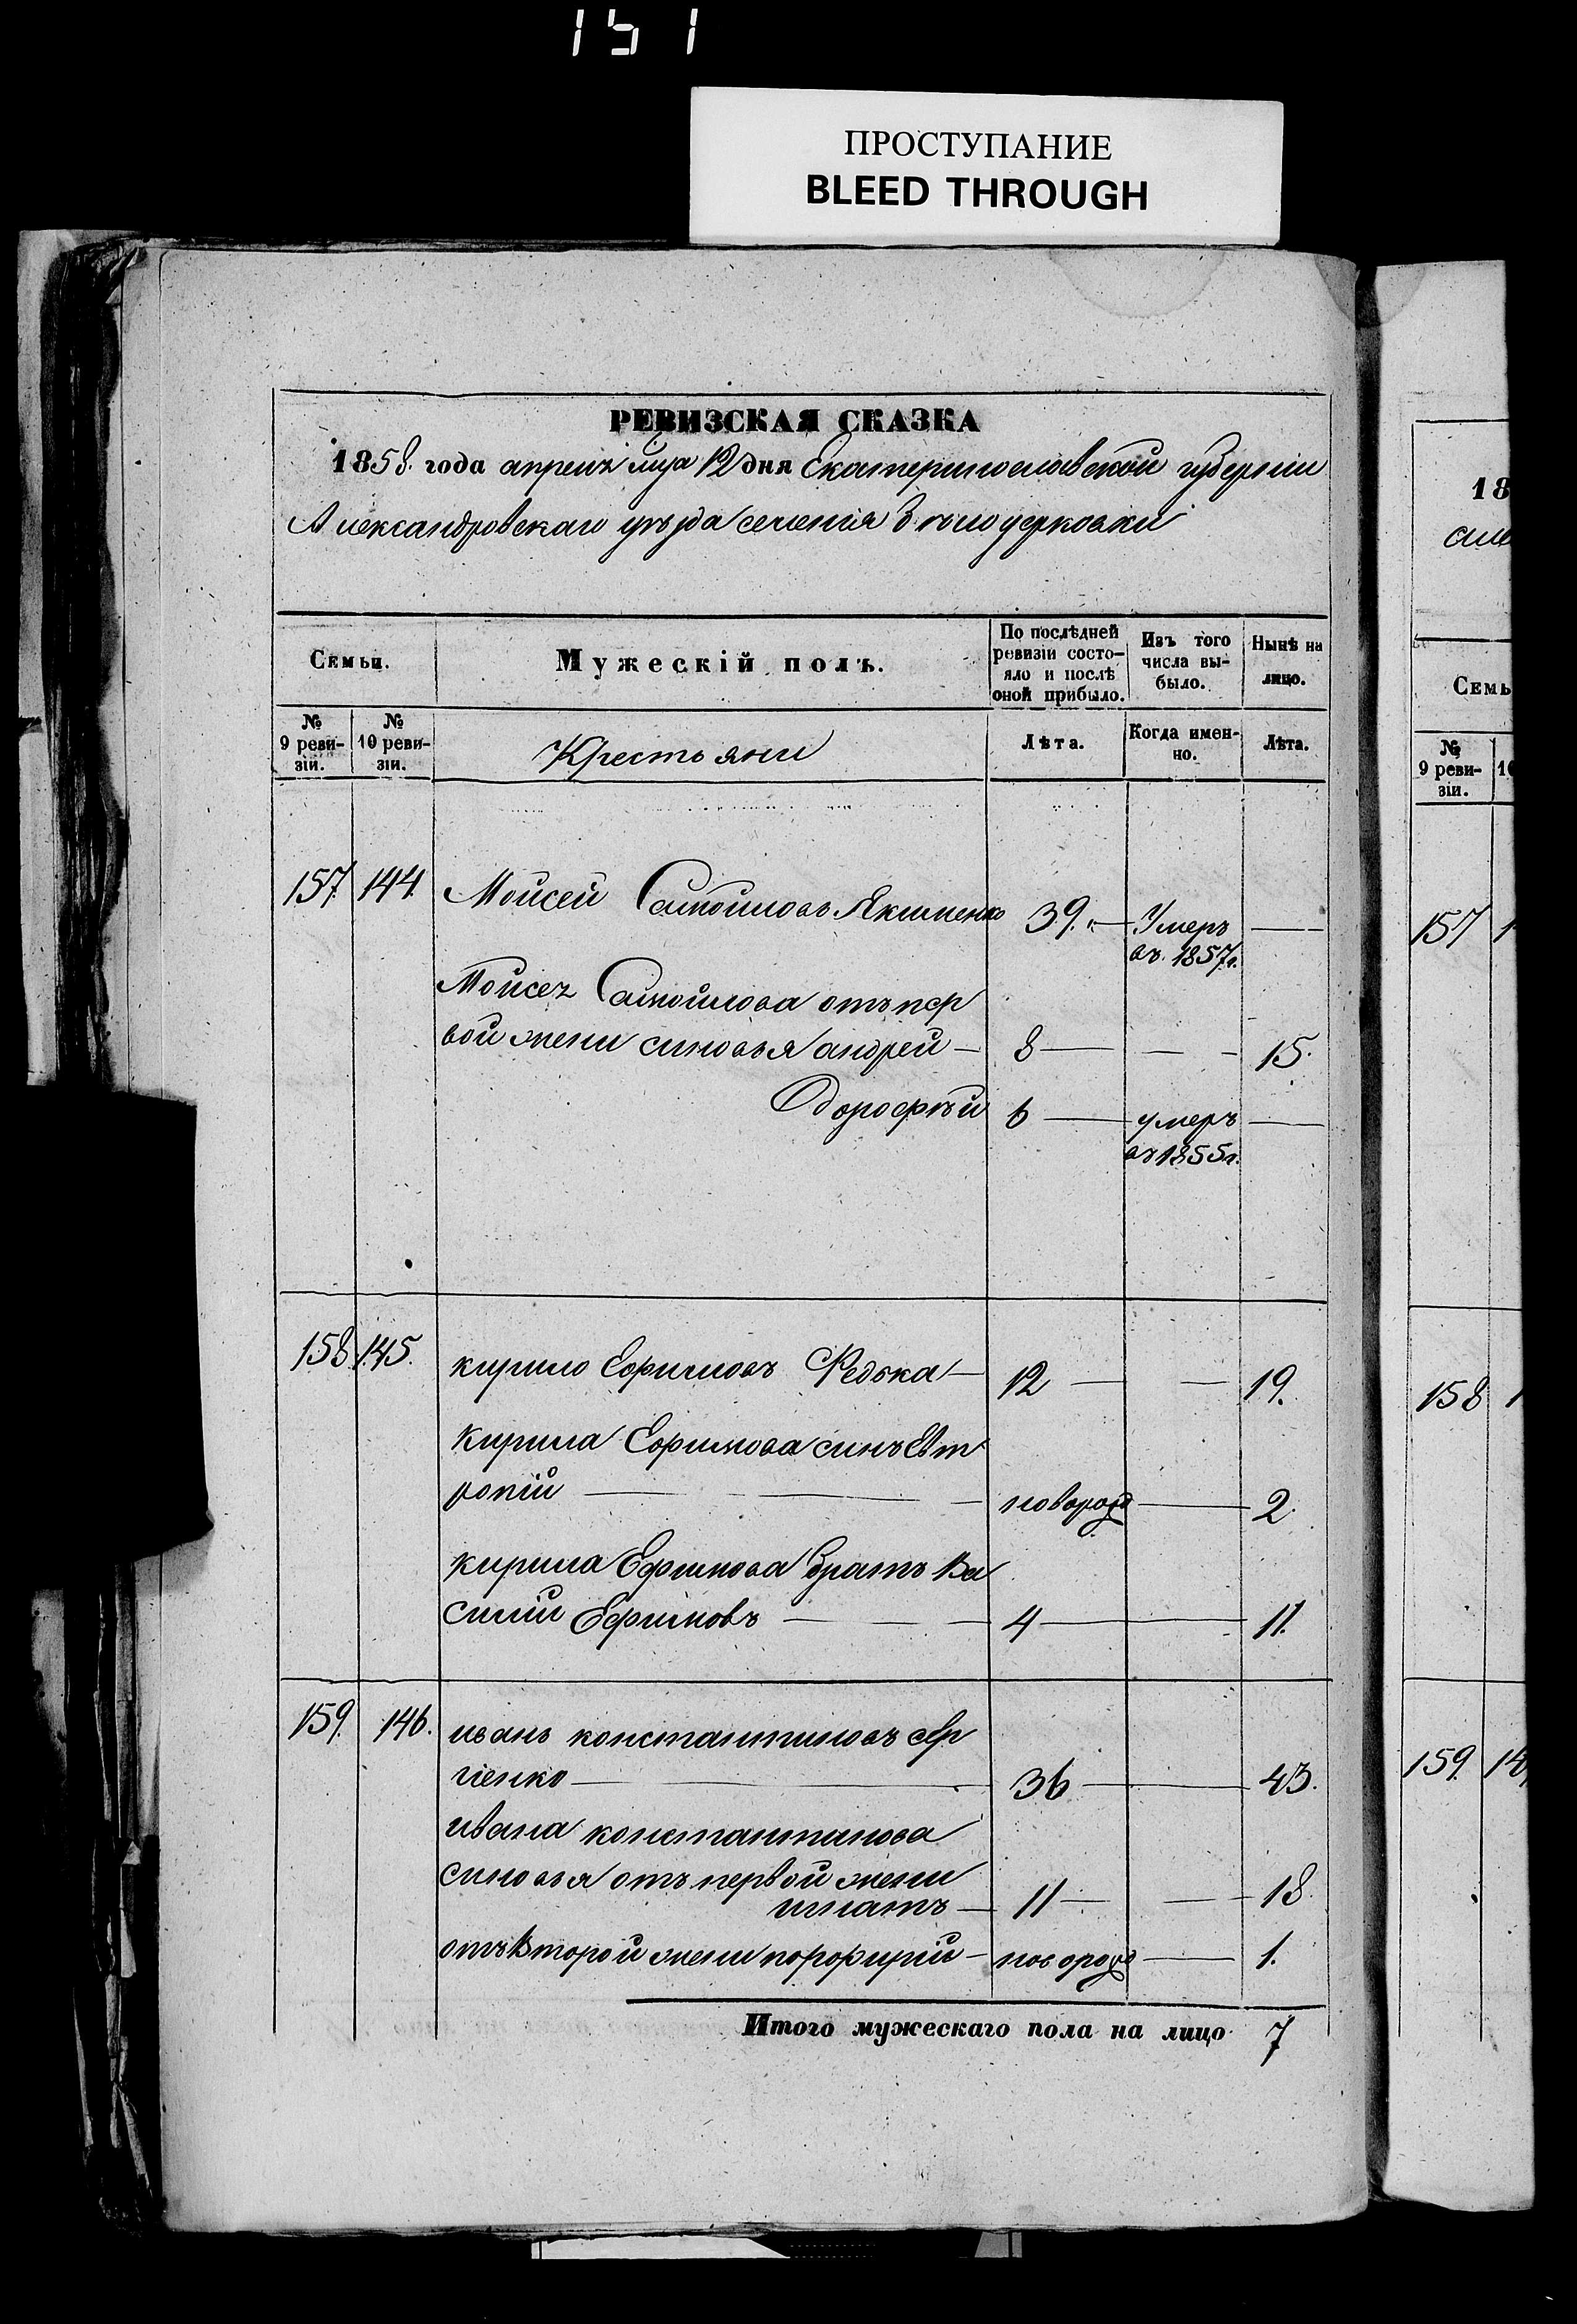 151
ПРОСТУПАНИЕ
BLEED THROUGH
РЕВИЗСКАЯ СКАЗКА
1858. года апреля мца 12 дня Екатеринославской губернии
Александровскаго уезда селения Белоцерковки
Семьи. Мужескій полъ. По послѣдней ревизіи состояло и послѣ оной прибыло. Изъ того числа выбыло. Нынѣ на лицо.
№ 9 ревизіи. № 10 ревизіи. Крестьяни Лѣта. Когда именно. Лѣта.
157. 144. Мойсей Самойловъ Якименко 39. Умеръ
въ 1857г.
Мойсея Самойлова отъ пер
вой жени синовья андрей 8 15.
Дорофѣй 6 умеръ
въ 1855г.
158. 145. кирило Ефимовъ Редька 12 19.
Кирила Ефимова синъ Евт
ропій новорожд 2.
кирила Ефимова братъ Ва
силий Ефимовъ 4 11.
159. 146. иванъ константиновъ Сер
гіенко 36 43.
ивана константинова
синовья отъ первой жени
игнатъ 11 18.
отъ второй жени порфирий новорожд 1.
Итого мужескаго пола на лицо 7
18
Семь
№
9 реви-
зіи.
157
158
159. 14